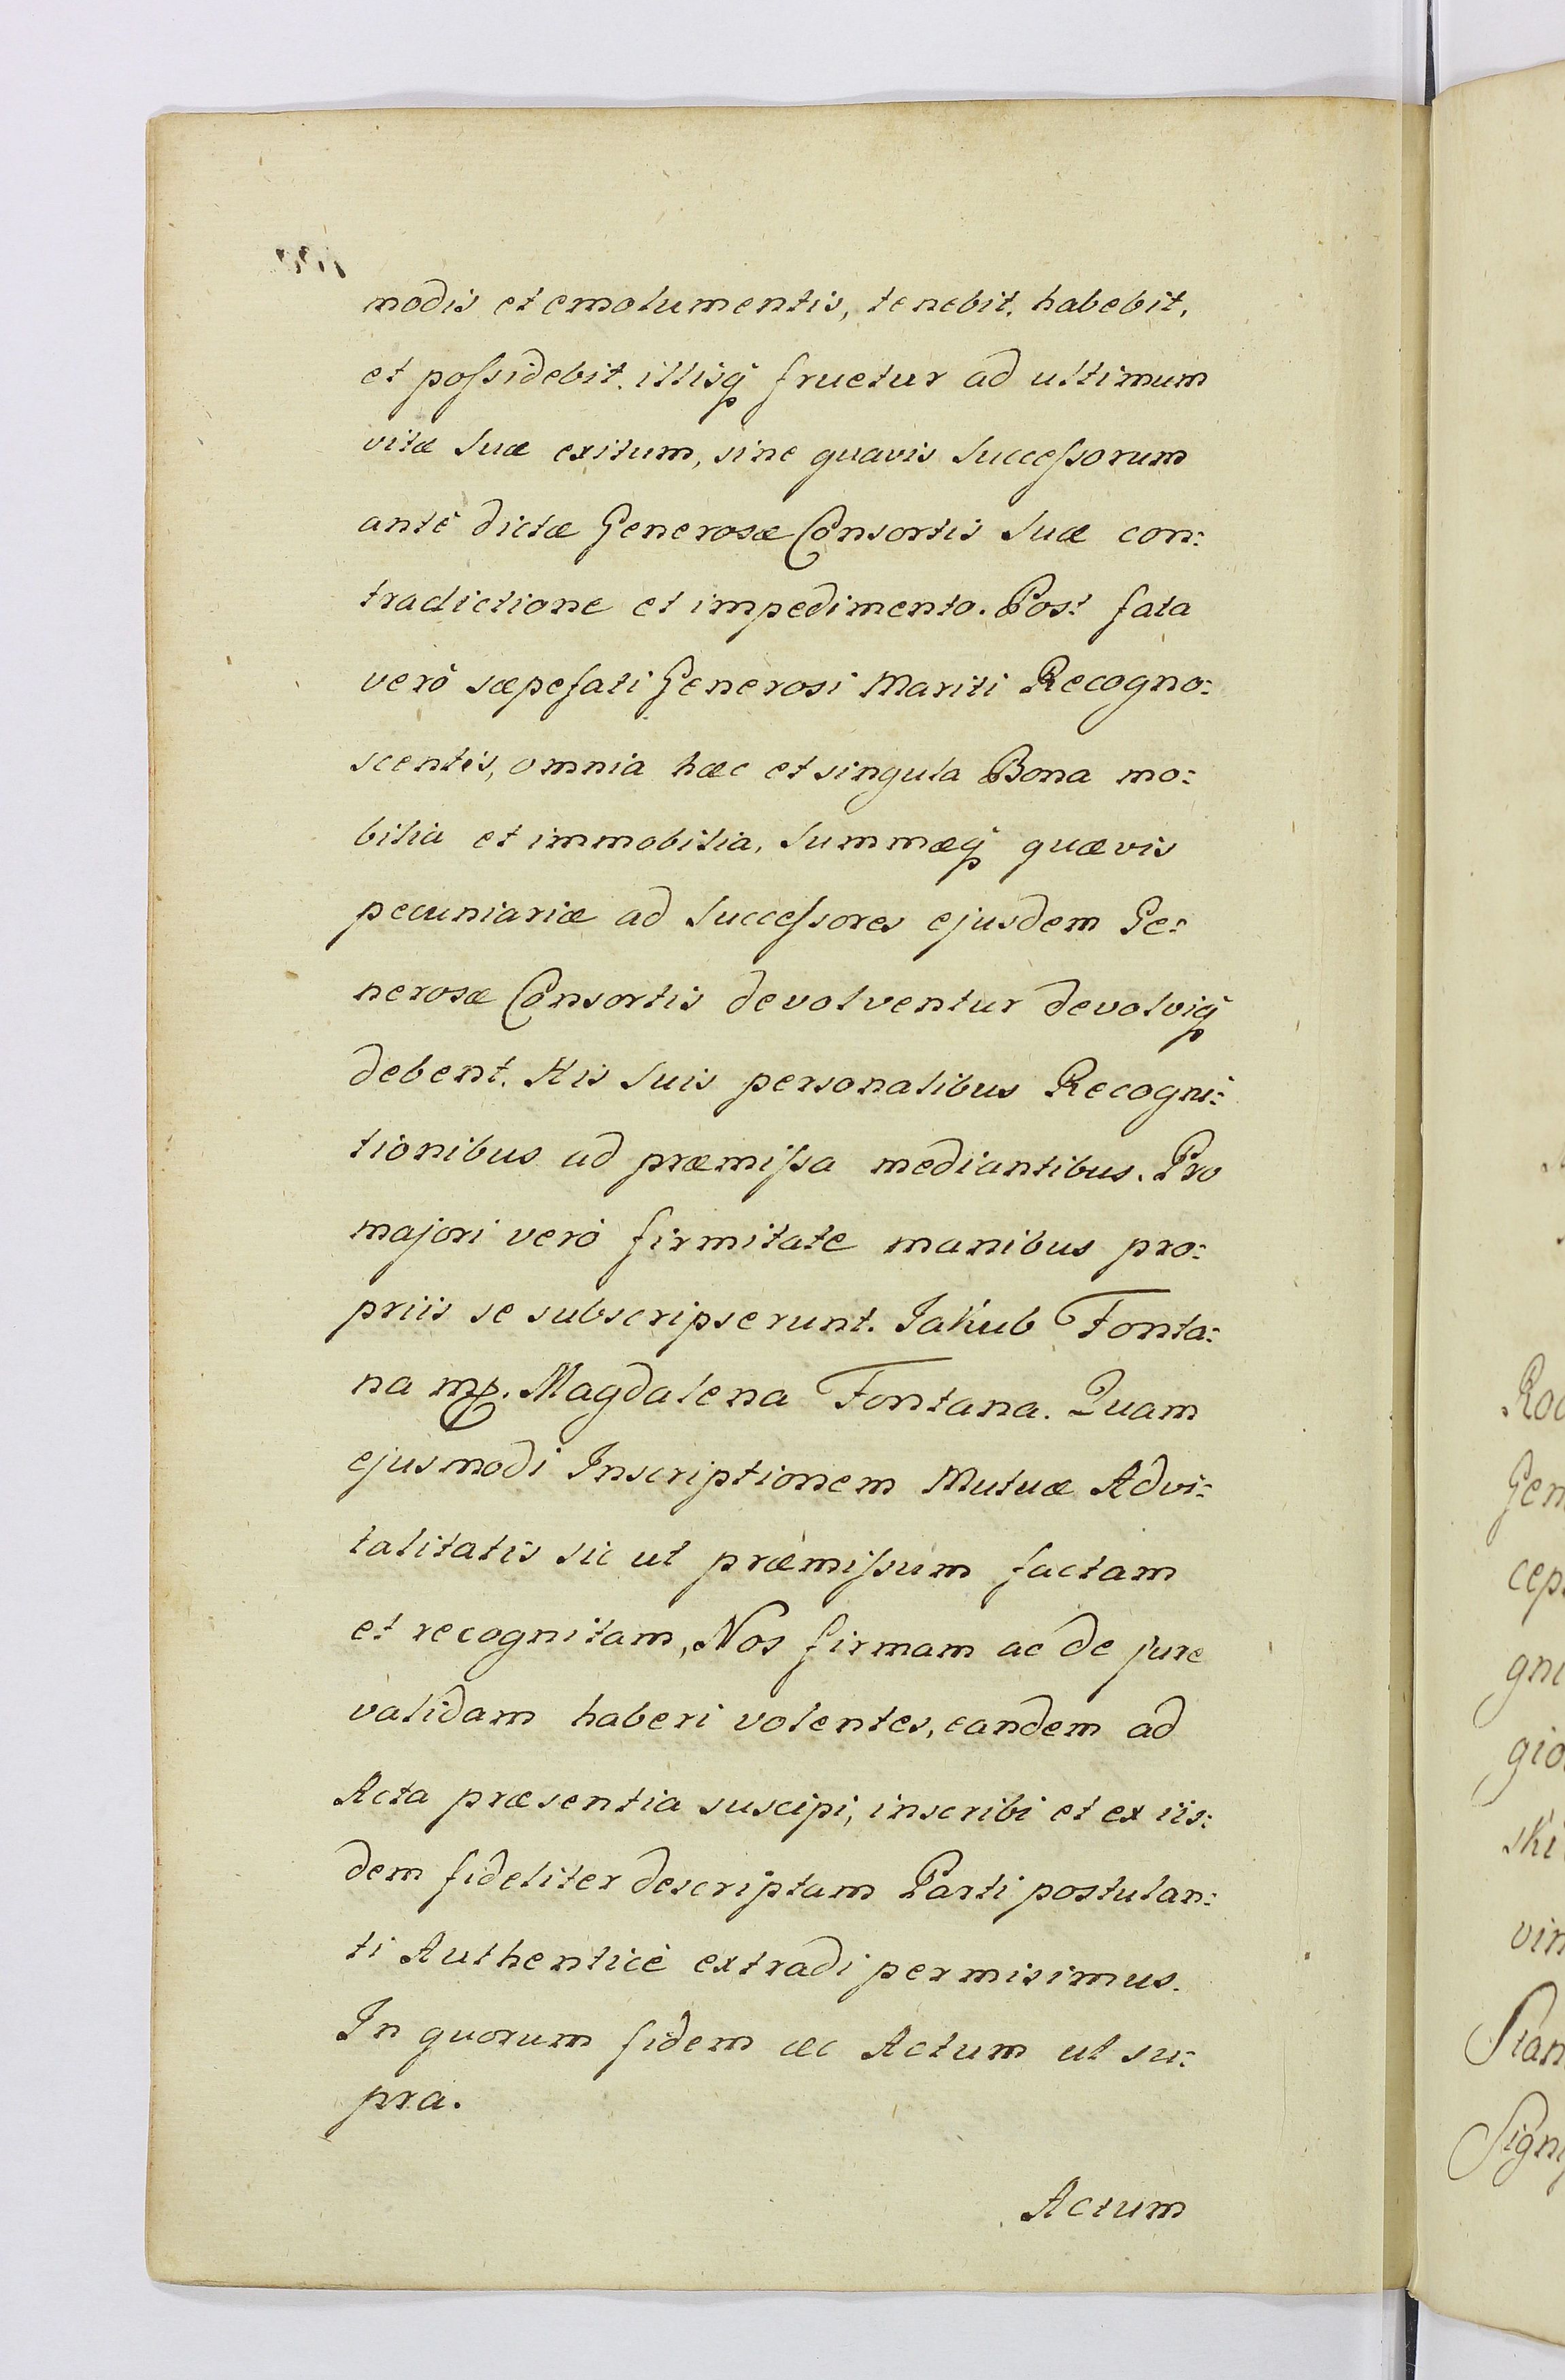 modis et emolumentis, tenebit, habebit,
et poſsidebit, illisq̃ fruetur ad ultimum
vitæ suæ exitum, sine quavis succeſsorum
antè dictæ Generosæ Consortis suæ con:
tradictione et impedimento. Post fata
verò sæpefati Generosi Mariti Recogno:
scentis, omnia hæc et singula Bona mo:
bilia et immobilia, summæq̃ quævis
pecuniariæ ad succeſsores ejusdem Ge:
nerosæ Consortis devolventur devolviq̃
debent. His suis personalibus Recogni:
tionibus ad præmiſsa mediantibus. Pro
majori verò firmitate manibus pro:
priis se subscripserunt. Jakub Fonta:
na mp. Magdalena Fontana. Quam
ejusmodi Inscriptionem Mutuæ Advi:
talitatis sic ut præmiſsum factam
et recognitam, Nos firmam ac de jure
validam haberi volentes, eandem ad
Acta præsentia suscipi, inscribi et ex iis:
dem fideliter descriptam Parti postulan:
ti Authenticè extradi permisimus.
In quorum fidem æc Actum ut su:
pra.
Actum
Gen
cep
gni
gio
ski
vin
Sian
Sign